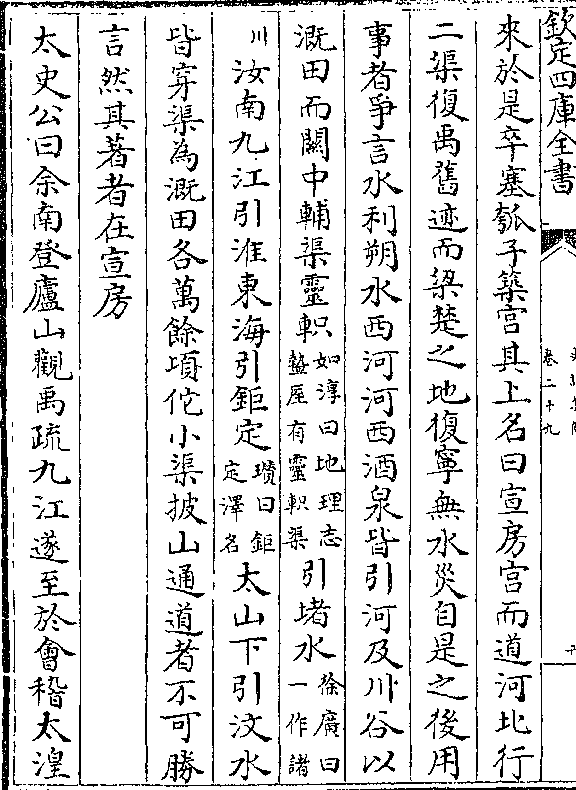 欽定四庫全書
卷二十九
來於是卒塞瓠子築宫其上名曰宣房宫而道河北行
二渠復禹舊迹而梁楚之地復寧無水災自是之後用
事者爭言水利朔水西河河西酒泉皆引河及川谷以
溉田而關中輔渠靈軹如淳曰地理志盩厔有靈軹渠引堵水徐廣曰一作諸
川汝南九江引淮東海引鉅定瓚曰鉅定澤名太山下引汶水
皆穿渠為溉田各萬餘頃佗小渠披山通道者不可勝
言然其著者在宣房
太史公曰余南登廬山觀禹疏九江遂至於會稽太湟